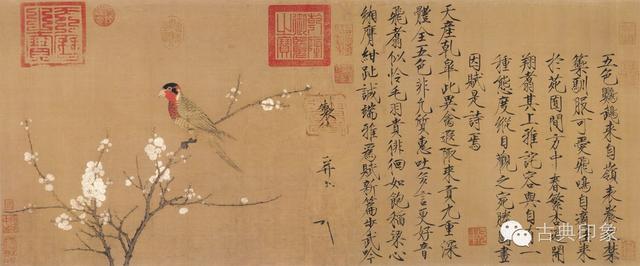 五色鸚鵡來自嶺表養之禁
籞馴服可愛飛鳴自適往來
於苑囿間方中春繁杏遍開
翔翥其上雅詫容與自有一
種態度縱目觀之宛勝圖畫
因賦是詩焉
天產乾皋此異禽遐陬來貢九重深
體全五色非凡質惠吐多言更好音
飛翥似憐毛羽貴徘徊如飽稻粱心
緗膺紺趾誠端雅為賦新篇步武吟
製
古典印象